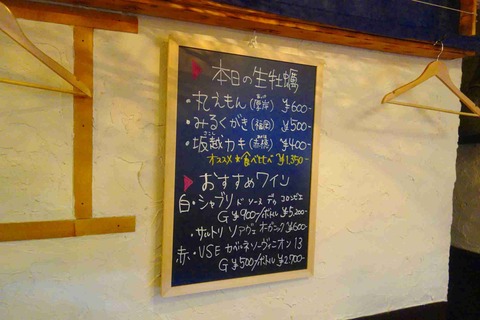 本日の生牡蠣
・丸えもん(厚岸) ¥600-
・みるくがき(福岡) ¥500-
・坂越カキ(赤穂) ¥400-
オススメ 食べ比べ ¥1,350-
おすすめワイン
白・シャブリ ドゥ コロンビエ
G ¥900/ボトル ¥5,200-
・サルトリ ソアヴェ オーガニック ¥600-
赤・VSE カベルネソーヴィニオン 13
G ¥500/ボトル ¥2,700-